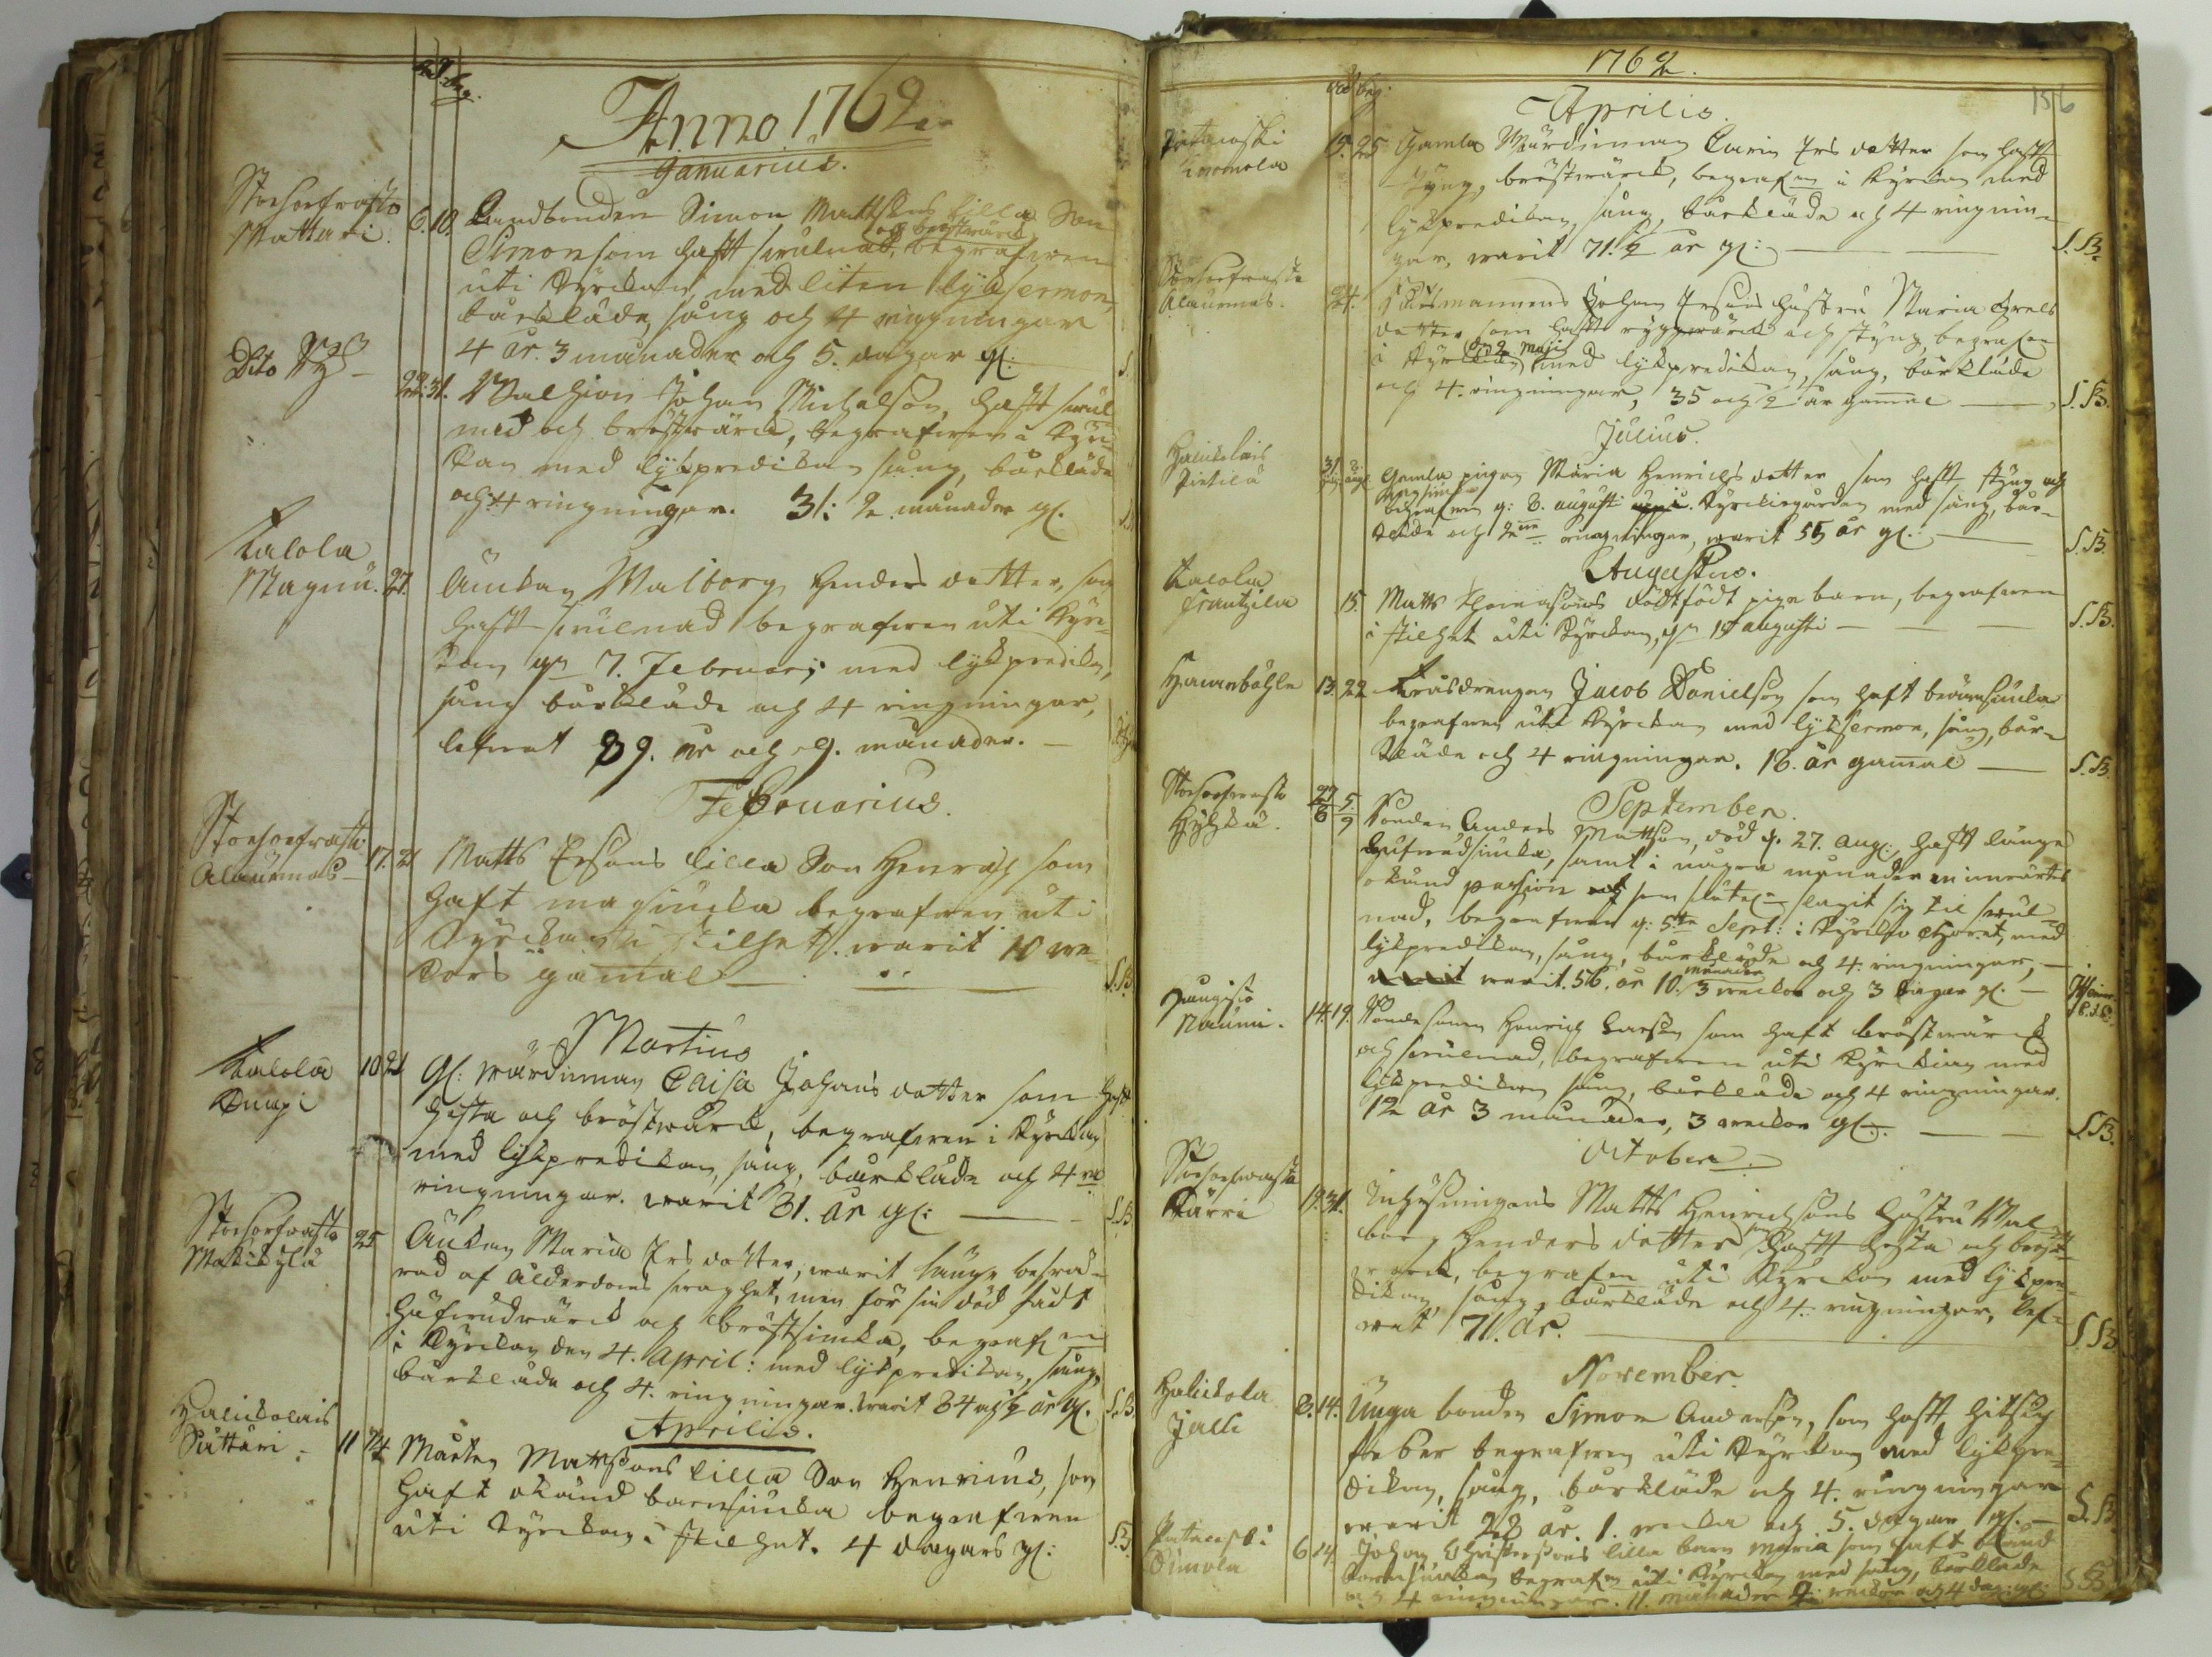 död beg.
Anno 1762
Januarius.
Storhorfwast
Mattari.
6. 10. Landbonden Simon Mattsons lilla Son
och bröstwärck
Simon som haft swulnad, begrafwen
uti Kyrckan med liten lyksermon,
bårkläde, sång och 4 ringningar
4 år. 3 månader och 5. dagar gl:
Dito
22. 31. Johan Michelson, haft swul
nad och bröstwärck, begrafwen i Kyr-
kan med lykpredikan sång, bårkläde
och 4 ringningar. 31: 2 månader gl.
Lalola
27. Änckan Walborg Henders dotter, som
haft swulnad begrafwen uti Kyr-
kan dn 7. Februarij med lykpredikan,
sång bårkläde och 4 ringningar,
lefwat 89. år och 9. månader.
Februarius.
Storhorfwast
17. 21 Matts Ersons lilla Son Henrich som
haft magsiucka begrafwen uti
Kyrckan i stilhet. warit 10 we-
kors gamal
S.B.
Martius
Lalola
Knapi
10 21 Gl: wärdinnan Caisa Johans dotter som haft
hosta och bröstwärck, begrafwen i Kyrckan
med lijkpredikan, sång, bårkläde och 4ra
ringningar. warit 81. år gl:
S.B.
Storhorfwast
Mattikylä
25 Änckan Maria Ers dotter, warit länge beswä-
rad af ålderdoms swaghet, men för sin död fådt
hufwudwärck och bröstsiucka, begrafwen
i Kyrckan den 4. April: med lijkpredikan, sång,
bårkläde och 4. ringningar. warit 84 och ½ år gl.
S.B.
Aprilis.
Halickolais
Suttari.
11 Mårten Mattsons lilla Son Henricus, som
haft okänd barnsiucka begrafwen
uti Kyrckan i stilhet. 4 dagars gl:
S.B.
1762.
156
död beg:
Aprilis.
19. 25 Gamla Wärdinnan Carin Ers dotter som haft
styng, bröstwärck, begrafwen i Kyrckan med
lykpredikan, sång, bårkläde och 4 ringnin-
gar, warit 71. ½ år gl:
S.B.
Storhorfwasta
24. mannens Johan Ersons hustru Maria Grels
dotter som haft ryggwärck och styng, begrafwen
i Kyrckan dn 2 Maji med lykpredikan, sång, bårkläde
och 4. ringningar, 35 och ½ år gammal
S.B.
Julius.
Halickolais
Pietilä
31 8 Gamla pigan Maria Henrichs dotter som haft styng och
begrafwen d: 8. augusti Kyrckiogården med sång, bår-
kläde och 2ne ringningar, warit 55 år gl.
S.B.
Augustus.
Lalola
Frantzila
15. Matts Thomasons dödfödt pige barn, begrafwen
i stilhet uti Kyrckan, dn 15 augusti
S.B.
13. 22 drengen Jacob Danielson som haft
begrafwen uti Kyrckan med lyksermon, sång, bår-
kläde och 4 ringningar. 18. år gamal
S.B.
September.
Storhorfwast
Hyhkä.
27/8 5/9 Bonden Anders Mattson, död d. 27. Aug: haft länge
hufwudsiucka, samt i några månader en inwärtes
okänd passion som slutel: slagit sig til swul-
nad, begrafwen d: 5te Sept: i Kyrckio Choret, med
lykpredikan, sång, bårkläde och 4. ringningar,
månader
warit 56. år 10. 3 weckor och 3 dagar gl.
Naumi.
14. 19. Bondesonen Henrich Larson som haft bröstwärck
och swulnad, begrafwen uti Kyrckian med
lykpredikan sång, bårkläde och 4 ringningar.
12 år 3 månader, 3 weckor gl.
S.B.
October.
Storhorfwasta
Kärri
19. 31. Inhysningens Matts Henrichsons hustru Wal-
borg Henders dotter som haft hosta och bröst-
wärck, begrafwen uti Kyrckan med lijkpre-
dikan, sång, bårkläde och 4. ringningar, lef-
wat 71. år.
S.B.
November.
Halickola
Jalli
8. 14. Unga bonden Simon Anderson, som haft hitsig
feber begrafwen uti Kyrckan med lijkpre-
dikan, sång, bårkläde och 4. ringningar
warit 28 år. 1. wecka och 5. dagar gl.
S.B.
Simola
6 14. Johan Christersons lilla barn Maria som haft okänd
barnsiuckan begrafwen uti Kyrckan med sång, bårkläde
och 4 ringningar. 11. månader 2 weckor och 4 dag: gl:
S.B.